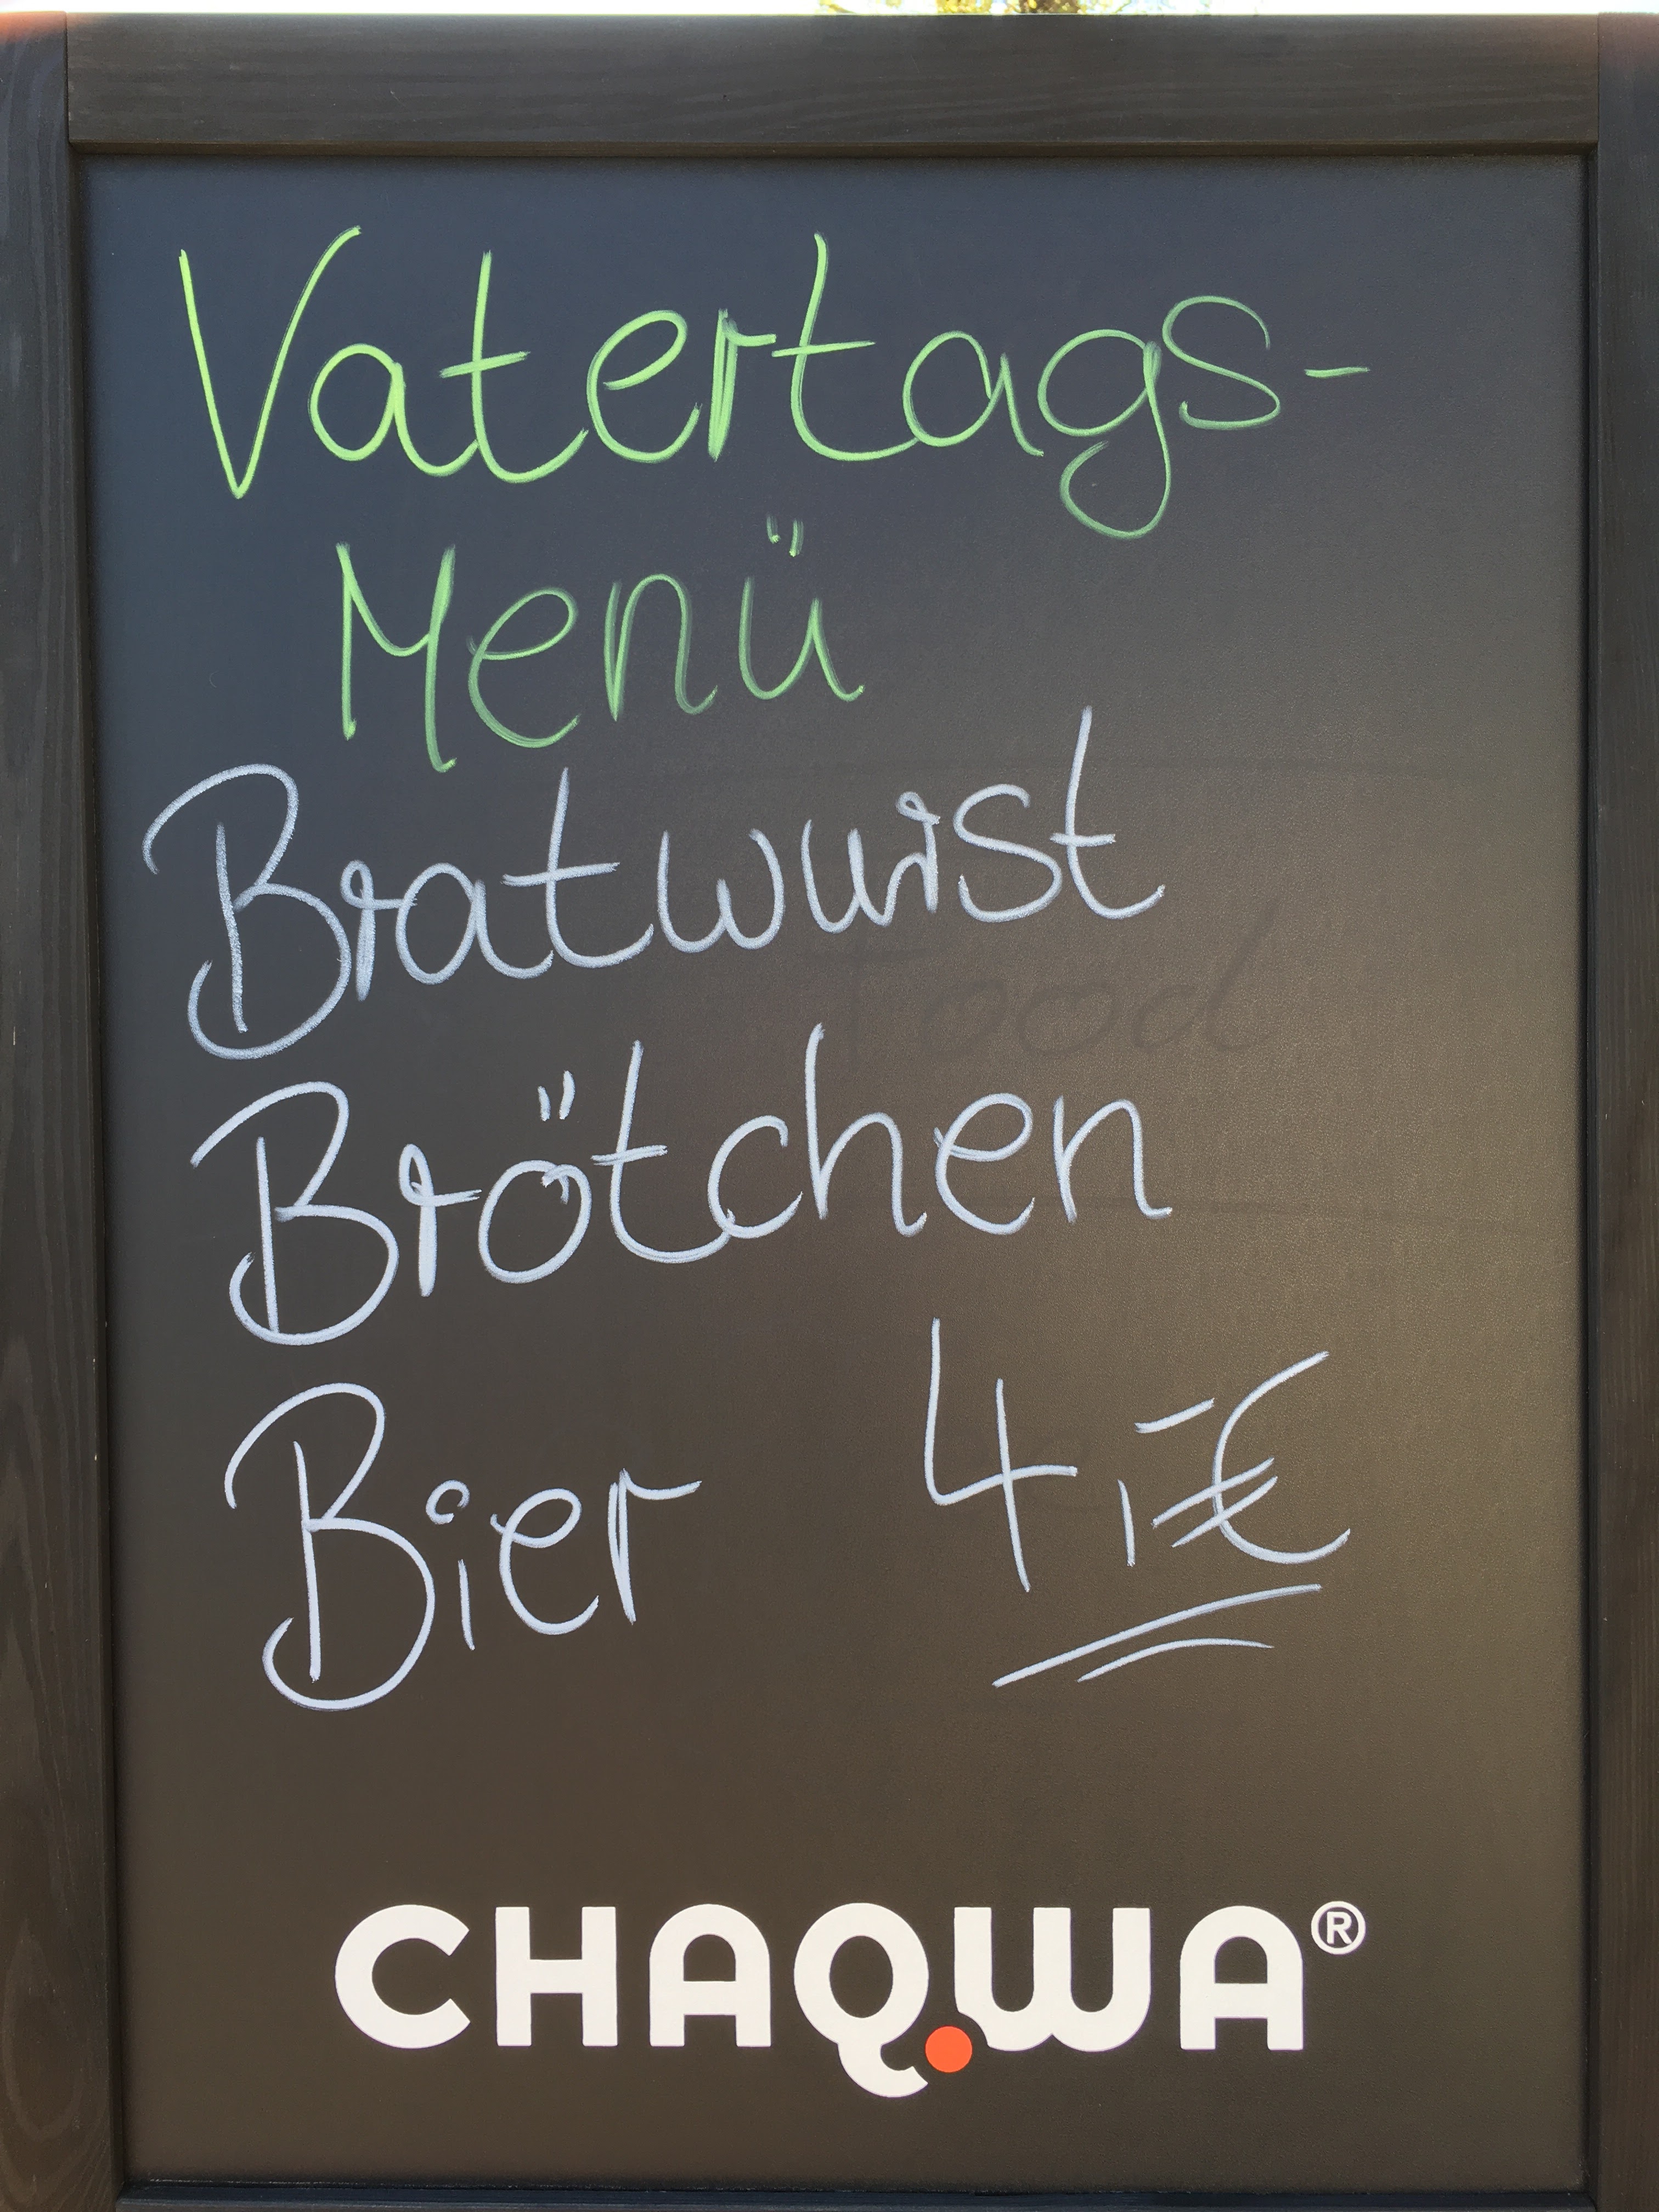 Vatertags-
Menü
Bratwurst
Food
Brötchen
Bier 4,-€
CHAQWA®